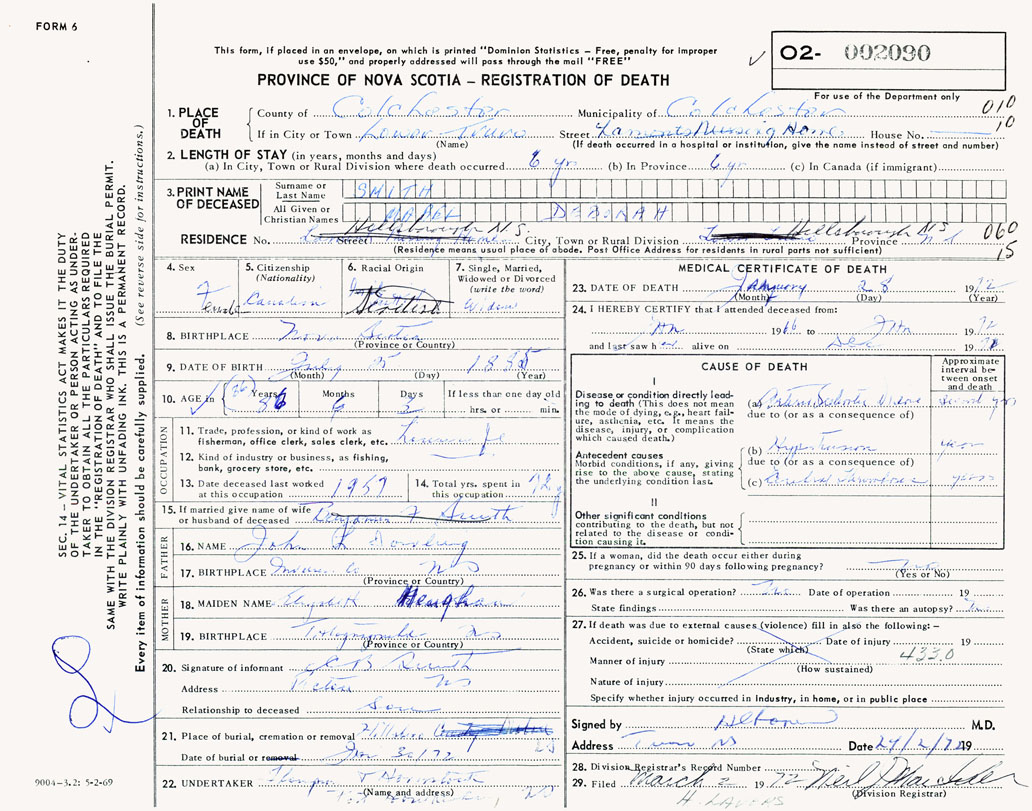 FORM 6
This form, if placed in an envelope, on which is printed "Dominion Statistics – Free, penalty for improper
use $50," and properly addressed will pass through the mail "FREE"
PROVINCE OF NOVA SCOTIA – REGISTRATION OF DEATH
O2- 002090
For use of the Department only
010
10
1. PLACE OF DEATH
County of Colchester Municipality of Colchester
If in City or Town Lower Truro Street Lamonts Nursing Home House No.
(Name) (If death occurred in a hospital or institution, give the name instead of street and number)
2. LENGTH OF STAY (in years, months and days)
(a) In City, Town or Rural Division where death occurred 6 yr (b) In Province 6 yr (c) In Canada (if immigrant)
3. PRINT NAME OF DECEASED
Surname or Last Name SMITH
All Given or Christian Names MABEL DEBORAH
RESIDENCE No. Street Hillsborough N.S. City, Town or Rural Division Hillsborough NS Province N S
060
15
(Residence means usual place of abode. Post Office Address for residents in rural parts not sufficient)
4. Sex Female
5. Citizenship (Nationality) Canadian
6. Racial Origin Scottish
7. Single, Married, Widowed or Divorced (write the word) Widow
8. BIRTHPLACE Nova Scotia
(Province or Country)
9. DATE OF BIRTH July 25
(Month) (Day) (Year)
10. AGE in Years 86 Months 6 Days 3 If less than one day old
hrs. or min.
OCCUPATION
11. Trade, profession, or kind of work as
fisherman, office clerk, sales clerk, etc.
12. Kind of industry or business, as fishing,
bank, grocery store, etc.
13. Date deceased last worked
at this occupation 1957
14. Total yrs. spent in
this occupation
15. If married give name of wife
or husband of deceased Benjamin F Smith
FATHER
16. NAME John
17. BIRTHPLACE N S
(Province or Country)
MOTHER
18. MAIDEN NAME Elizabeth
19. BIRTHPLACE NS
(Province or Country)
20. Signature of informant B Smith
Address Pictou NS
Relationship to deceased Son
21. Place of burial, cremation or removal
Date of burial or removal Jan 30/72
22. UNDERTAKER
(Name and address) NS
MEDICAL CERTIFICATE OF DEATH
23. DATE OF DEATH January 28 1972
(Month) (Day) (Year)
24. I HEREBY CERTIFY that I attended deceased from:
Jan 1966 to Jan 1972
and last saw her alive on Dec 19
CAUSE OF DEATH
Approximate interval between onset and death
I
Disease or condition directly leading to death (This does not mean the mode of dying, e.g., heart failure, asthenia, etc. It means the disease, injury, or complication which caused death.)
(a)
due to (or as a consequence of)
Antecedent causes
Morbid conditions, if any, giving rise to the above cause, stating the underlying condition last.
(b) Hypertension years
due to (or as a consequence of)
(c) Cerebral Thrombosis years
II
Other significant conditions
contributing to the death, but not related to the disease or condition causing it.
25. If a woman, did the death occur either during
pregnancy or within 90 days following pregnancy? No
(Yes or No)
26. Was there a surgical operation? No Date of operation 19
State findings Was there an autopsy? No
27. If death was due to external causes (violence) fill in also the following:–
Accident, suicide or homicide? Date of injury 19
(State which) 433.0
Manner of injury
(How sustained)
Nature of injury
Specify whether injury occurred in industry, in home, or in public place
Signed by M.D.
Address Truro NS Date 29/2/72 19
28. Division Registrar's Record Number
29. Filed March 2 1972
(Division Registrar)
SEC. 14 – VITAL STATISTICS ACT MAKES IT THE DUTY
OF THE UNDERTAKER OR PERSON ACTING AS UNDERTAKER
TO OBTAIN ALL THE PARTICULARS REQUIRED
IN THE "REGISTRATION OF DEATH" AND TO FILE THE
SAME WITH THE DIVISION REGISTRAR WHO SHALL ISSUE THE BURIAL PERMIT.
WRITE PLAINLY WITH UNFADING INK. THIS IS A PERMANENT RECORD.
Every item of information should be carefully supplied. (See reverse side for instructions.)
9004-3.2: 5-2-69